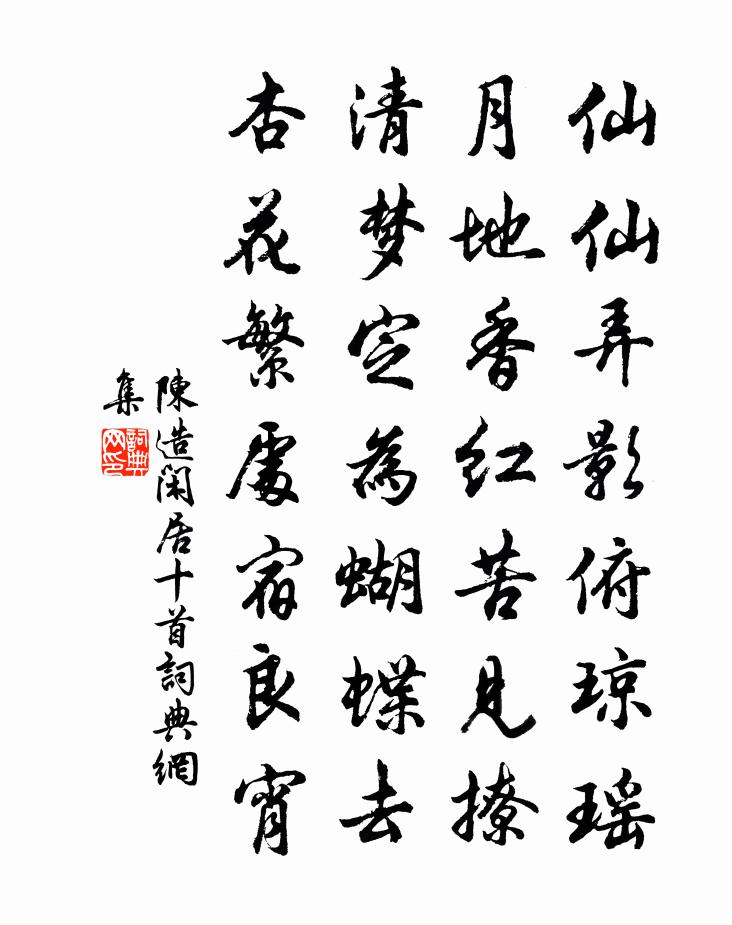 仙仙弄影俯琼瑶
月地香红苦见撩
清梦定為蝴蝶去
杏花繁處宿良宵
陳造閑居十首詞典網
集
詞典网印